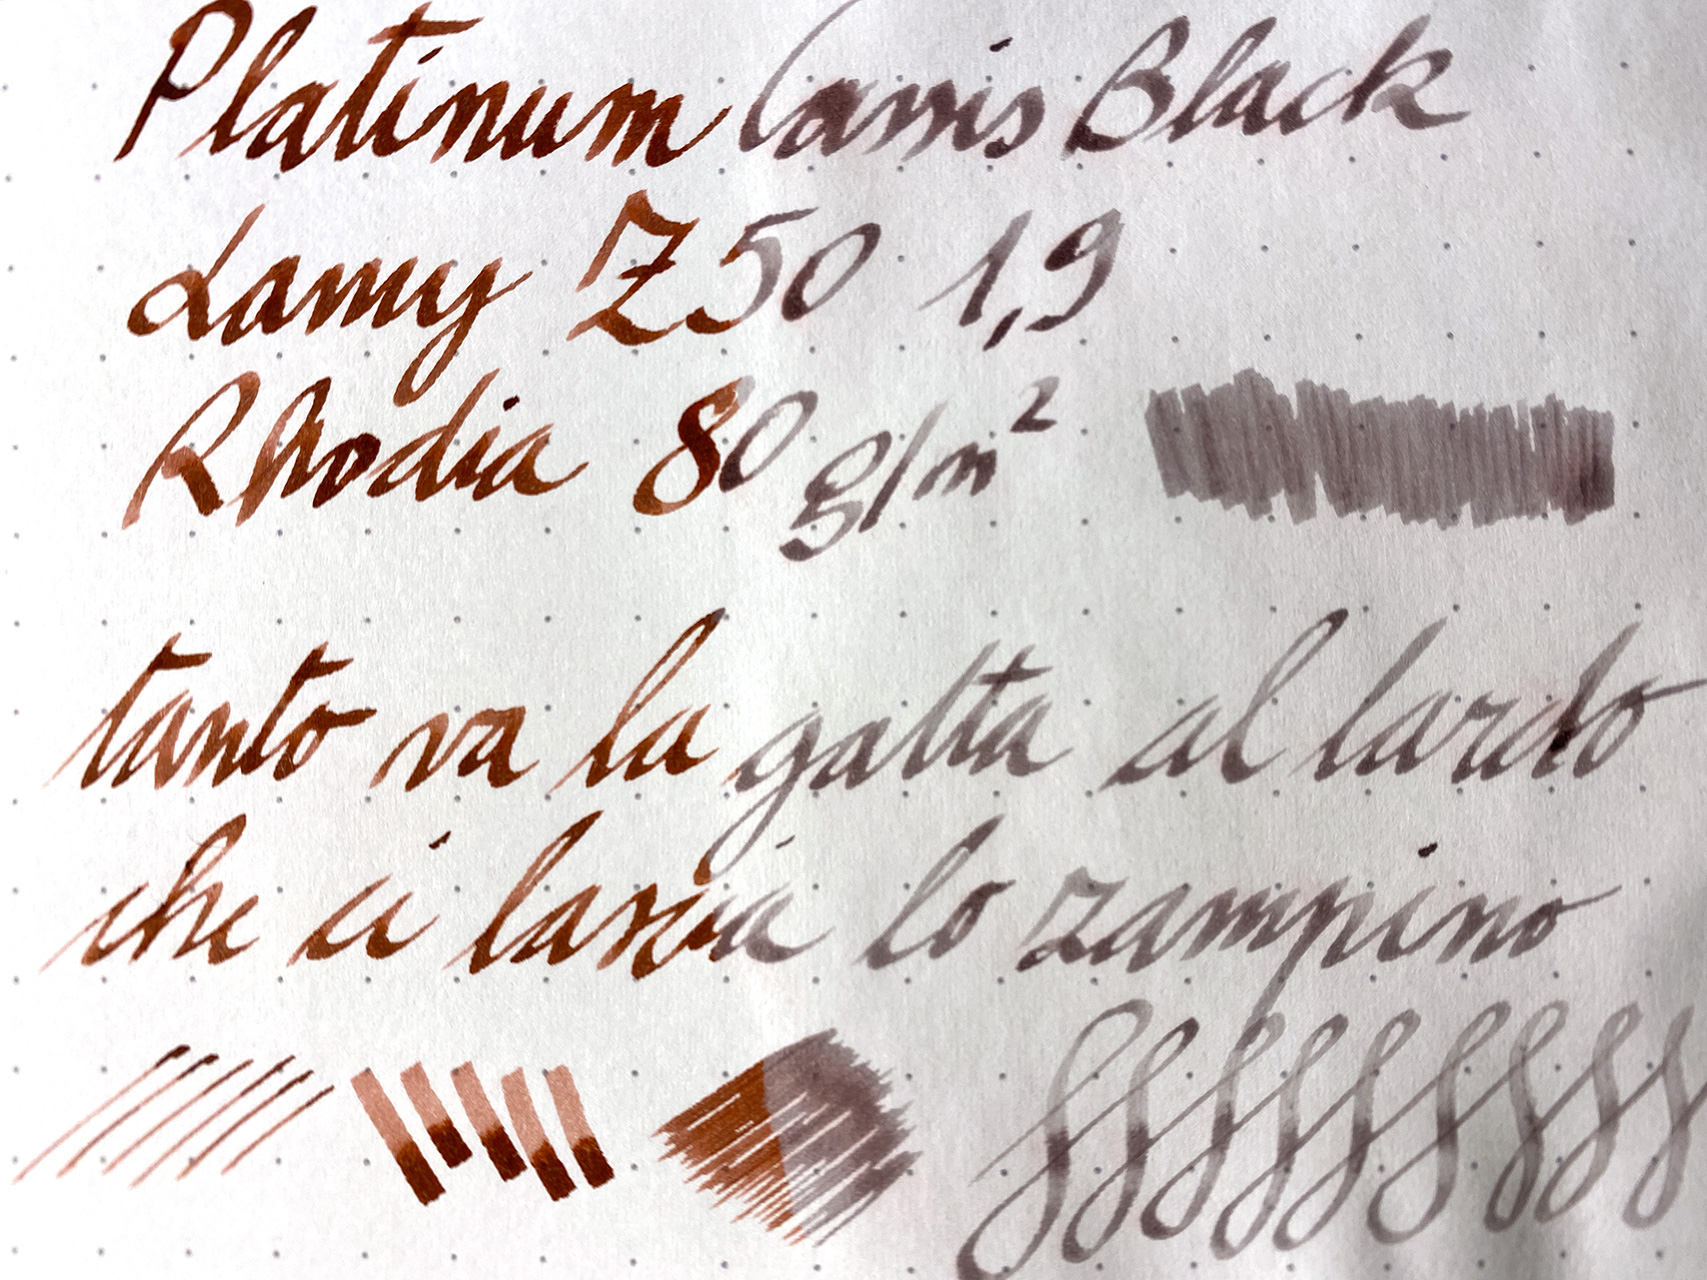 Platinum Cassis Black
Lamy Z50 1,9
Rhodia 80 g/m²
tanto va la gatta al lardo
che ci lascia lo zampino